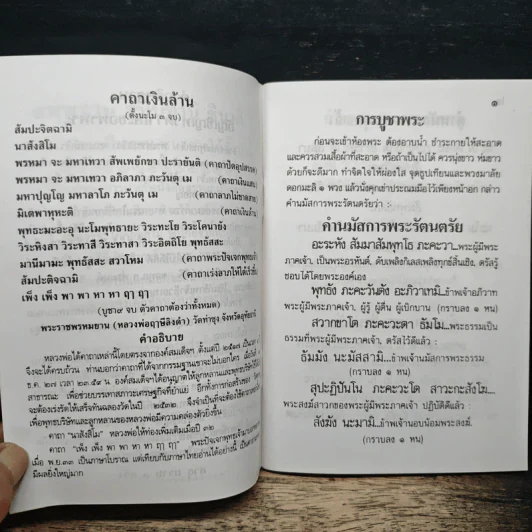 คาถาเงินล้าน
(ตั้งนะโม ๓ จบ)
สัมปะจิตฉามิ
นาสังสิโม
พรหมา จะ มหาเทวา สัพเพยักขา ปะรายันติ (คาถาปัดอุปสรรค)
พรหมา จะ มหาเทวา อภิลาภา ภะวันตุ เม (คาถาเงินแสน)
มหาปุญโญ มหาลาโภ ภะวันตุ เม (คาถาลาภไม่ขาดสาย)
มิเตพาหุหะติ (คาถาเงินล้าน)
พุทธะมะอะอุ นะโมพุทธายะ วิระทะโย วิระโคนายัง
วิระหิงสา วิระทาสี วิระทาสา วิระอิตถิโย พุทธัสสะ
มานีมามะ พุทธัสสะ สวาโหม (คาถาพระปัจเจกพุทธเจ้า)
สัมปะติจฉามิ (คาถาเร่งลาภให้ได้เร็วขึ้น)
เพ็ง เพ็ง พา พา หา หา ฤๅ ฤๅ
(บูชา๙ จบ ตัวคาถาต้องว่าทั้งหมด)
พระราชพรหมยาน (หลวงพ่อฤๅษีลิงดำ) วัดท่าซุง จังหวัดอุทัยธานี
คำอธิบาย
หลวงพ่อได้คาถาเหล่านี้โดยตรงจากองค์สมเด็จฯ ตั้งแต่ปี
จึงจะได้ครบถ้วน ท่านบอกว่าคาถาที่ได้จากกรรมฐานเขาจะไม่บอกใคร เมื่อวันที่
ธ.ค. องค์สมเด็จฯได้อนุญาตให้ลูกหลานและพุทธบริษัทใช้
สาธารณะ เพื่อช่วยบรรเทาสภาวะเศรษฐกิจที่ย่ำแย่ อีกทั้งการก่อสร้างของวัด
จะต้องเร่งรัดให้เสร็จทันฉลองวัดในปี ๒๕๓๒ จึงจำเป็นที่จะต้องใช้คาถา
เพื่อพุทธบริษัทและลูกหลานของหลวงพ่อมีความคล่องตัวยิ่งขึ้น
คาถา "นาสังสิโม" หลวงพ่อให้ท่องเพิ่มเติมเมื่อปี ๓๒
คาถา "เพ็ง เพ็ง พา พา หา หา ฤๅ ฤๅ" พระปัจเจกพุทธเจ้ามาบอก
เมื่อ พ.ย.๓๓ เป็นภาษาโบราณ แต่เทียบกับภาษาไทยอ่านได้อย่างนี้ เป็นคาถา
มีผลยิ่งใหญ่มาก
๑
การบูชาพระ
ก่อนจะเข้าห้องพระ ต้องอาบน้ำ ชำระกายให้สะอาด
และควรสวมเสื้อผ้าที่สะอาด หรือถ้าเป็นไปได้ ควรนุ่งขาว ห่มขาว
ด้วยก็จะดีมาก ทำจิตใจให้ผ่องใส จุดธูปเทียนและพวงมาลัย
ดอกมะลิ ๑ พวง แล้วนั่งคุกเข่าประณมมือไว้เพียงหน้าอก กล่าว
คำนมัสการพระรัตนตรัยว่า :-
คำนมัสการพระรัตนตรัย
อะระหัง สัมมาสัมพุทโธ ภะคะวา...พระผู้มีพระ
ภาคเจ้า, เป็นพระอรหันต์, ดับเพลิงกิเลสเพลิงทุกข์สิ้นเชิง, ตรัสรู้
ชอบได้โดยพระองค์เอง
พุทธัง ภะคะวันตัง อะภิวาเทมิ...ข้าพเจ้าอภิวาท
พระผู้มีพระภาคเจ้า, ผู้รู้ ผู้ตื่น ผู้เบิกบาน (กราบลง ๑ หน)
สวากขาโต ภะคะวะตา ธัมโม...พระธรรมเป็น
ธรรมที่พระผู้มีพระภาคเจ้า, ตรัสไว้ดีแล้ว
ธัมมัง นะมัสสามิ...ข้าพเจ้านมัสการพระธรรม
(กราบลง ๑ หน)
สุปะฏิปันโน ภะคะวะโต สาวะกะสังโฆ...
พระสงฆ์สาวกของพระผู้มีพระภาคเจ้า ปฏิบัติดีแล้ว
สังฆัง นะมามิ...ข้าพเจ้านอบน้อมพระสงฆ์.
(กราบลง ๑ หน)